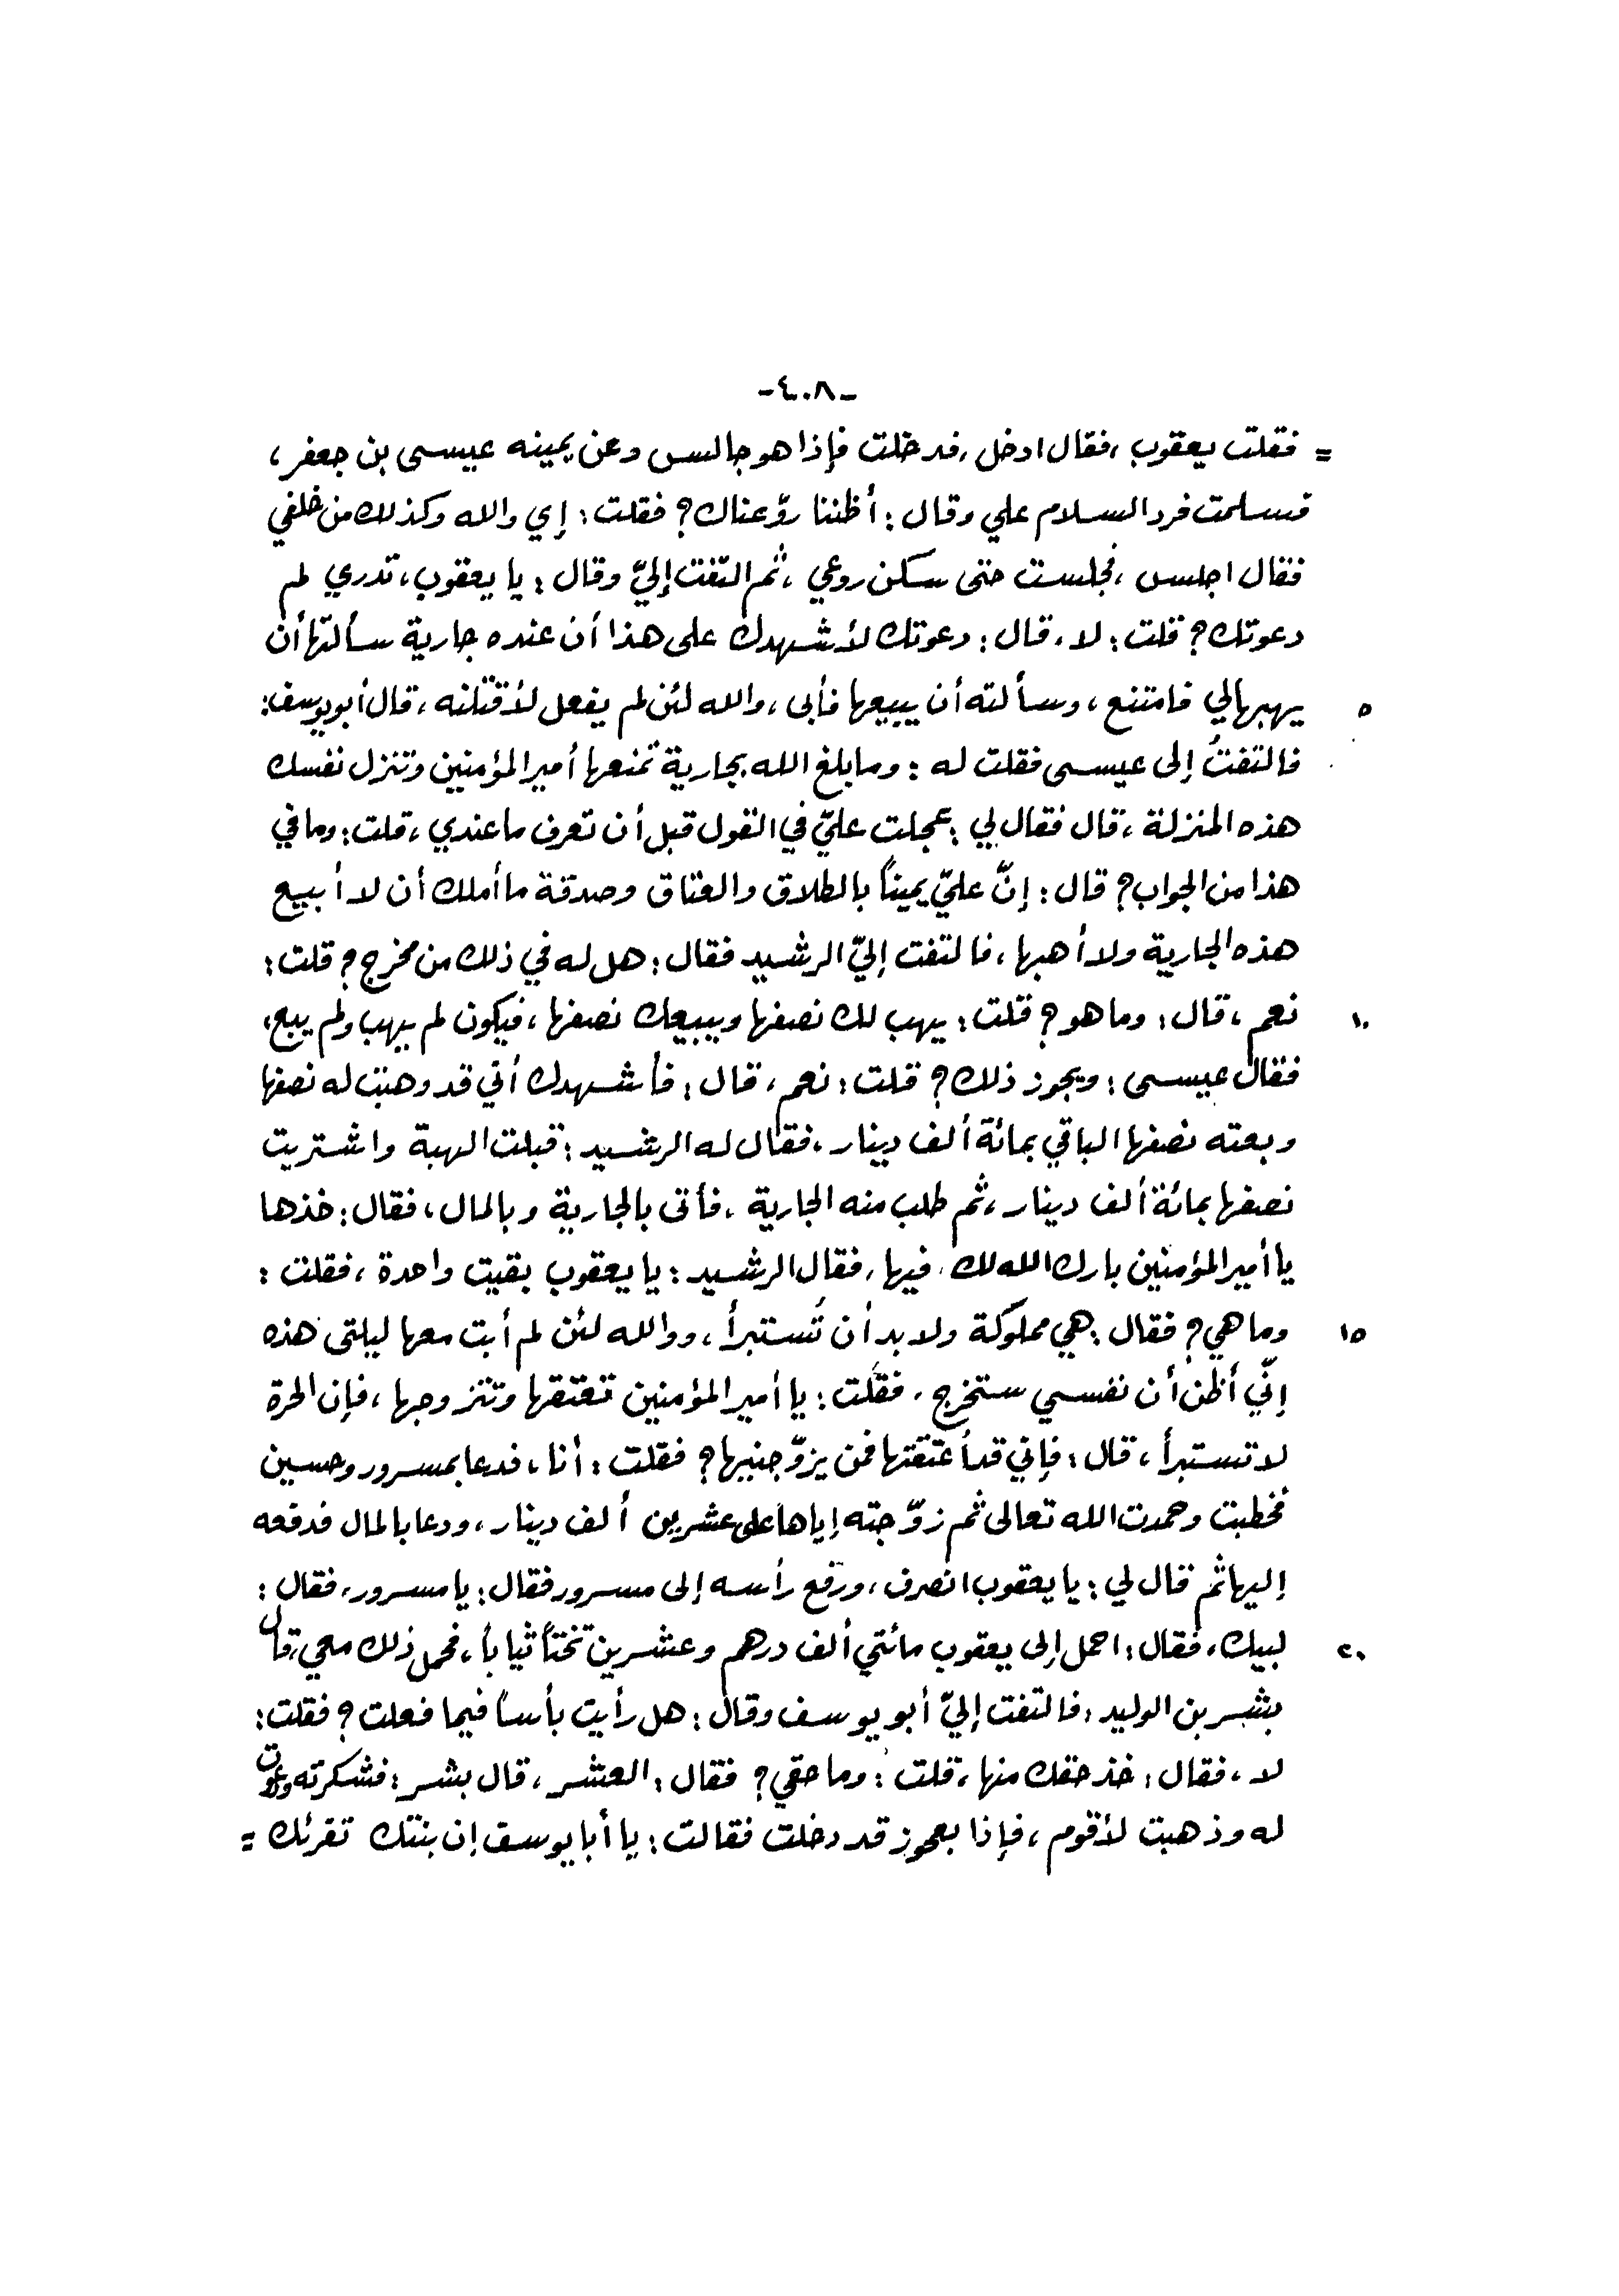 -٤٠٨-
= فقلت يعقوب، فقال ادخل، فدخلت فإذا هو جالس وعن يمينه عيسى بن جعفر،
فسلمت فرد السلام علي وقال: أظننا روّعناك؟ فقلت: إي والله وكذلك من خلفي
فقال اجلس، فجلست حتى سكن روعي، ثم التفت إليّ وقال: يا يعقوب، تدري لم
دعوتك؟ قلت: لا، قال: دعوتك لأشهدك على هذا أن عنده جارية سألتها أن
٥ يهبها لي فامتنع، وسألته أن يبيعها فأبى، والله لئن لم يفعل لأقتلنه، قال أبو يوسف:
فالتفتُ إلى عيسى فقلت له: وما بلغ الله بجارية تمنعها أمير المؤمنين وتنزل نفسك
هذه المنزلة، قال فقال لي: عجلت عليّ في القول قبل أن تعرف ما عندي، قلت: وما في
هذا من الجواب؟ قال: إنّ عليّ يميناً بالطلاق والعتاق وصدقة ما أملك أن لا أبيع
هذه الجارية ولا أهبها، فالتفت إليّ الرشيد فقال: هل له في ذلك من مخرج؟ قلت:
١٠ نعم، قال: وما هو؟ قلت: يهب لك نصفها ويبيعك نصفها، فيكون لم يهب ولم يبع،
فقال عيسى: ويجوز ذلك؟ قلت: نعم، قال: فأشهدك أني قد وهبت له نصفها
وبعته نصفها الباقي بمائة ألف دينار، فقال له الرشيد: قبلت الهبة واشتريت
نصفها بمائة ألف دينار، ثم طلب منه الجارية، فأتى بالجارية وبالمال، فقال: خذها
يا أمير المؤمنين بارك الله لك فيها، فقال الرشيد: يا يعقوب بقيت واحدة، فقلت:
١٥ وما هي؟ فقال: هي مملوكة ولا بد أن تُستبرأ، ووالله لئن لم أبت معها ليلتي هذه
إنّي أظن أن نفسي ستخرج، فقلت: يا أمير المؤمنين تعتقها وتتزوجها، فإن الحرة
لا تستبرأ، قال: فإني قد أعتقتها فمن يزوّجنيها؟ فقلت: أنا، فدعا بمسرور وحسين
فخطبت وحمدت الله تعالى ثم زوّجته إياها على عشرين ألف دينار، ودعا بالمال فدفعه
إليها ثم قال لي: يا يعقوب انصرف، ورفع رأسه إلى مسرور فقال: يا مسرور، فقال:
٢٠ لبيك، فقال: احمل إلى يعقوب مائتي ألف درهم وعشرين تختاً ثياباً، فحمل ذلك معي، قال
بشر بن الوليد: فالتفت إليّ أبو يوسف وقال: هل رأيت بأساً فيما فعلت؟ فقلت:
لا، فقال: خذ حقك منها، قلت: وما حقي؟ فقال: العشر، قال بشر: فشكرته ودعوت
له وذهبت لأقوم، فإذا بعجوز قد دخلت فقالت: يا أبا يوسف إن بنتك تقرئك =